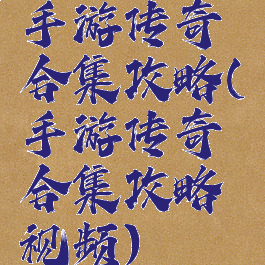 手游传奇
合集攻略(
手游传奇
合集攻略
视频)